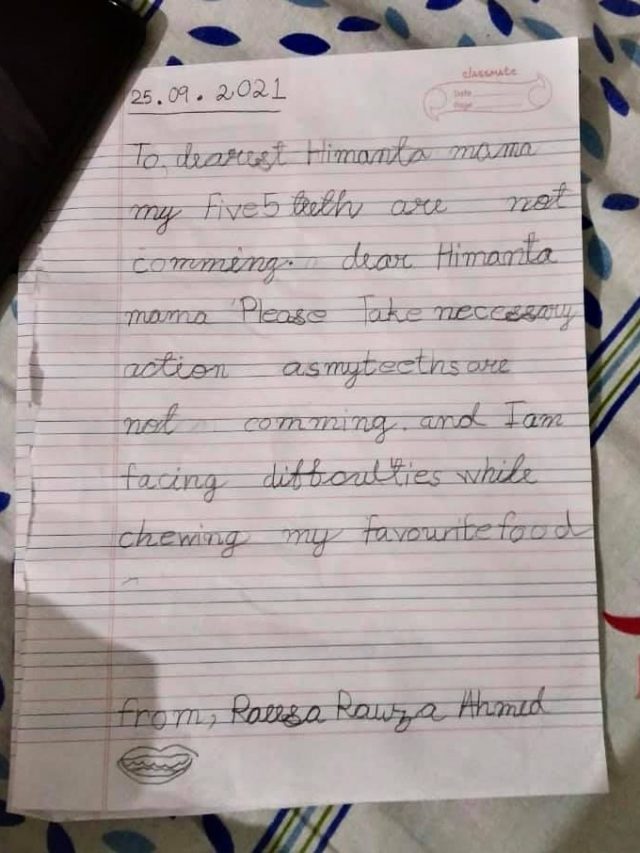 classmate
Date
Page
25.09.2021
To, dearest Himanta mama
my Five5 teeth are not
comming. dear Himanta
mama Please Take necessary
action asmyteethsare
not comming. and I am
facing difficulties while
chewing my favouritefood
from, Raeesa Rawza Ahmed